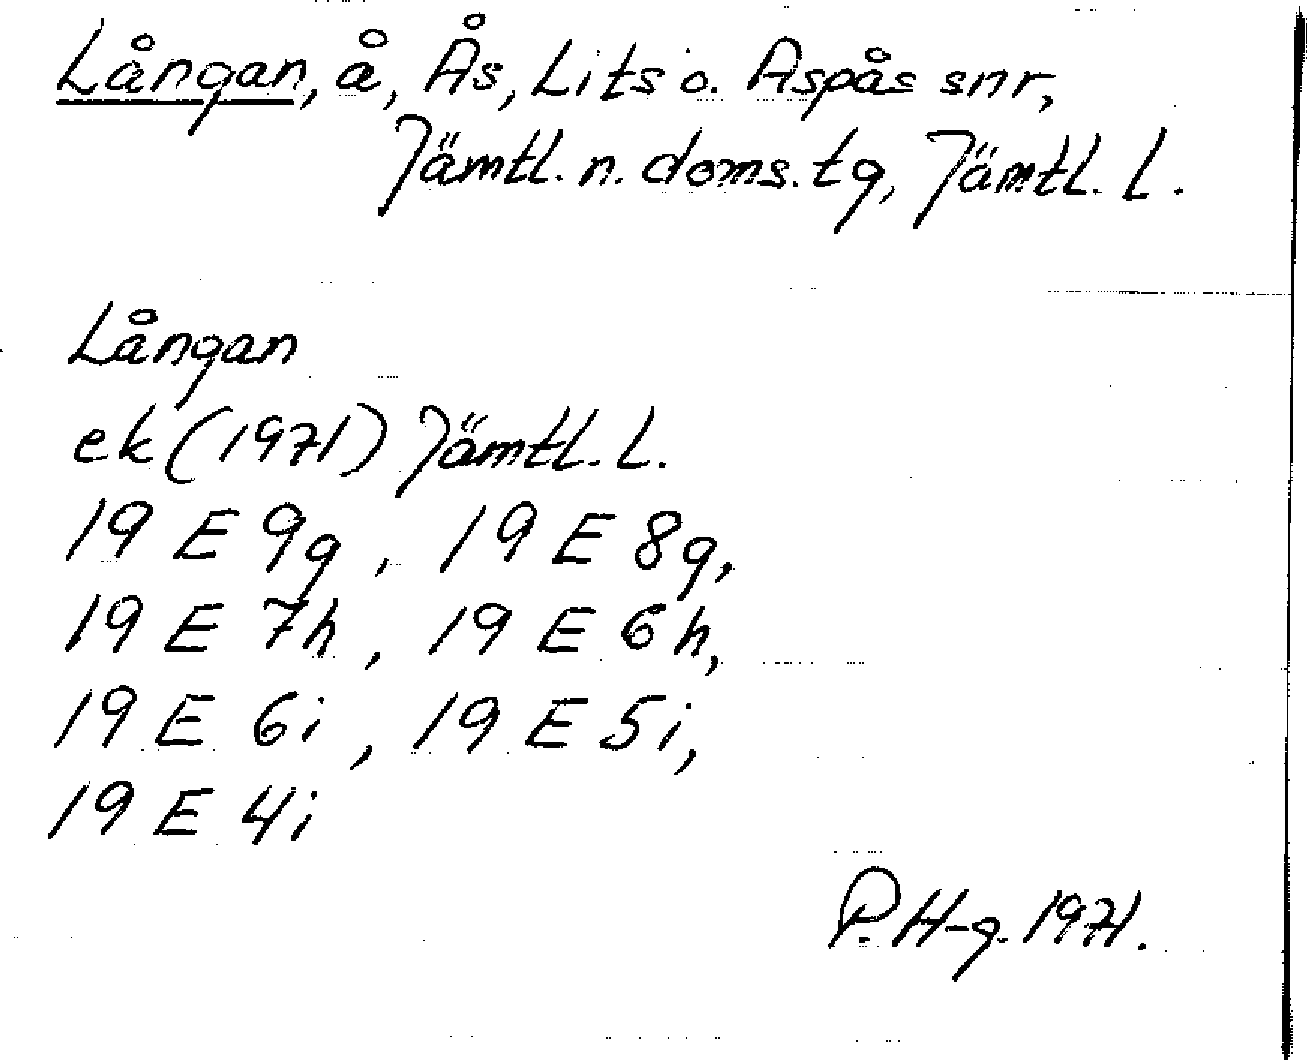 Långan, å, Ås, Lits o. Aspås snr,
Jämtl. n. doms. tg, Jämtl. L.
Långan
ek (1971) Jämtl. L.
19 E 9g, 19 E 8g,
19 E 7h, 19 E 6h,
19 E 6i, 19 E 5i,
19 E 4i
P. H-g. 1971.